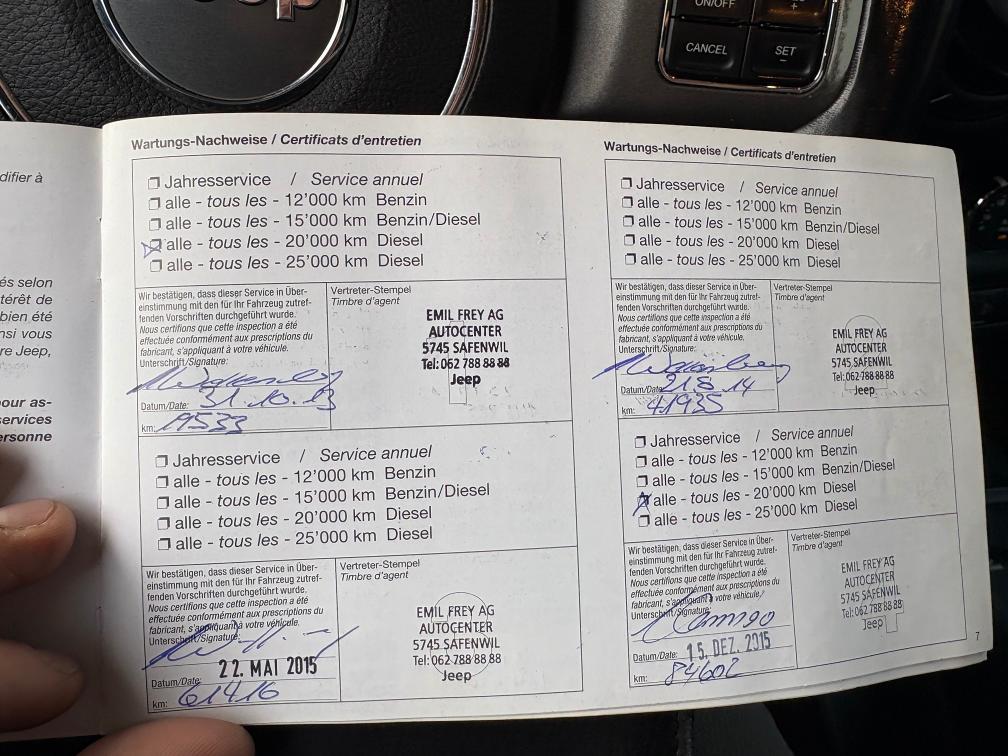 ep
ON/OFF
+
CANCEL
SET
-
difier à
és selon
térêt de
bien été
nsi vous
re Jeep,
our as-
services
ersonne
Wartungs-Nachweise / Certificats d'entretien
Jahresservice / Service annuel
alle - tous les - 12'000 km Benzin
alle - tous les - 15'000 km Benzin/Diesel
alle - tous les - 20'000 km Diesel
alle - tous les - 25'000 km Diesel
Wir bestätigen, dass dieser Service in Über-
einstimmung mit den für Ihr Fahrzeug zutref-
fenden Vorschriften durchgeführt wurde.
Nous certifions que cette inspection a été
effectuée conformément aux prescriptions du
fabricant, s'appliquant à votre véhicule.
Unterschrift/Signature:
Datum/Date: 31.10.13
km: 19533
Vertreter-Stempel
Timbre d'agent
EMIL FREY AG
AUTOCENTER
5745 SAFENWIL
Tel: 062 788 88 88
Jeep
Jahresservice / Service annuel
alle - tous les - 12'000 km Benzin
alle - tous les - 15'000 km Benzin/Diesel
alle - tous les - 20'000 km Diesel
alle - tous les - 25'000 km Diesel
Wir bestätigen, dass dieser Service in Über-
einstimmung mit den für Ihr Fahrzeug zutref-
fenden Vorschriften durchgeführt wurde.
Nous certifions que cette inspection a été
effectuée conformément aux prescriptions du
fabricant, s'appliquant à votre véhicule.
Unterschrift/Signature:
Datum/Date: 22. MAI 2015
km: 61416
Vertreter-Stempel
Timbre d'agent
EMIL FREY AG
AUTOCENTER
5745 SAFENWIL
Tel: 062 788 88 88
Jeep
Wartungs-Nachweise / Certificats d'entretien
Jahresservice / Service annuel
alle - tous les - 12'000 km Benzin
alle - tous les - 15'000 km Benzin/Diesel
alle - tous les - 20'000 km Diesel
alle - tous les - 25'000 km Diesel
Wir bestätigen, dass dieser Service in Über-
einstimmung mit den für Ihr Fahrzeug zutref-
fenden Vorschriften durchgeführt wurde.
Nous certifions que cette inspection a été
effectuée conformément aux prescriptions du
fabricant, s'appliquant à votre véhicule.
Unterschrift/Signature:
Datum/Date: 21.8.14
km: 41935
Vertreter-Stempel
Timbre d'agent
EMIL FREY AG
AUTOCENTER
5745 SAFENWIL
Tel: 062 788 88 88
Jeep
Jahresservice / Service annuel
alle - tous les - 12'000 km Benzin
alle - tous les - 15'000 km Benzin/Diesel
alle - tous les - 20'000 km Diesel
alle - tous les - 25'000 km Diesel
Wir bestätigen, dass dieser Service in Über-
einstimmung mit den für Ihr Fahrzeug zutref-
fenden Vorschriften durchgeführt wurde.
Nous certifions que cette inspection a été
effectuée conformément aux prescriptions du
fabricant, s'appliquant à votre véhicule.
Unterschrift/Signature:
Datum/Date: 15. DEZ. 2015
km: 84602
Vertreter-Stempel
Timbre d'agent
EMIL FREY AG
AUTOCENTER
5745 SAFENWIL
Tel: 062 788 88 88
Jeep
7